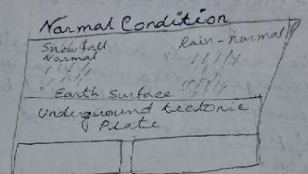 Normal Condition
Snowfall Rain-normal
Normal
Earth Surface
Underground tectonic
Plate